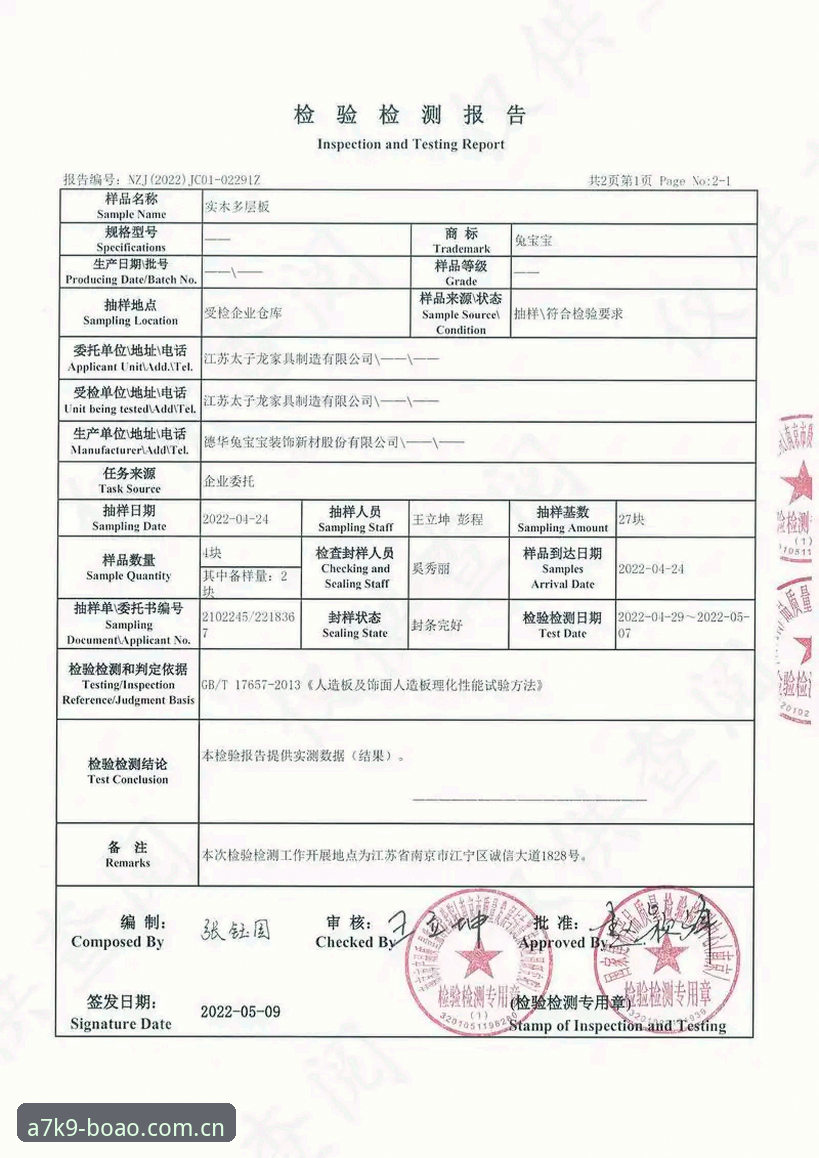 检 验 检 测 报 告
Inspection and Testing Report
报告编号: NZJ(2022)JC01-02291Z 共2页第1页 Page No:2-1
样品名称
Sample Name
实木多层板
规格型号
Specifications
——
商 标
Trademark
兔宝宝
生产日期\批号
Producing Date/Batch No.
——\——
样品等级
Grade
——
抽样地点
Sampling Location
受检企业仓库
样品来源\状态
Sample Source\
Condition
抽样\符合检验要求
委托单位\地址\电话
Applicant Unit\Add.\Tel.
江苏太子龙家具制造有限公司\——\——
受检单位\地址\电话
Unit being tested\Add\Tel.
江苏太子龙家具制造有限公司\——\——
生产单位\地址\电话
Manufacturer\Add\Tel.
德华兔宝宝装饰新材股份有限公司\——\——
任务来源
Task Source
企业委托
抽样日期
Sampling Date
2022-04-24
抽样人员
Sampling Staff
王立坤 彭程
抽样基数
Sampling Amount
27块
样品数量
Sample Quantity
4块
其中备样量: 2
块
检查封样人员
Checking and
Sealing Staff
奚秀丽
样品到达日期
Samples
Arrival Date
2022-04-24
抽样单\委托书编号
Sampling
Document\Applicant No.
2102245/221836
7
封样状态
Sealing State
封条完好
检验检测日期
Test Date
2022-04-29～2022-05-
07
检验检测和判定依据
Testing/Inspection
Reference/Judgment Basis
GB/T 17657-2013《人造板及饰面人造板理化性能试验方法》
检验检测结论
Test Conclusion
本检验报告提供实测数据（结果）。
备 注
Remarks
本次检验检测工作开展地点为江苏省南京市江宁区诚信大道1828号。
编 制:
Composed By
张钰国
审 核:
Checked By
王立坤
批 准:
Approved By
签发日期:
Signature Date
2022-05-09
(检验检测专用章)
Stamp of Inspection and Testing
检验检测专用章
(1)
检验检测专用章
a7k9-boao.com.cn